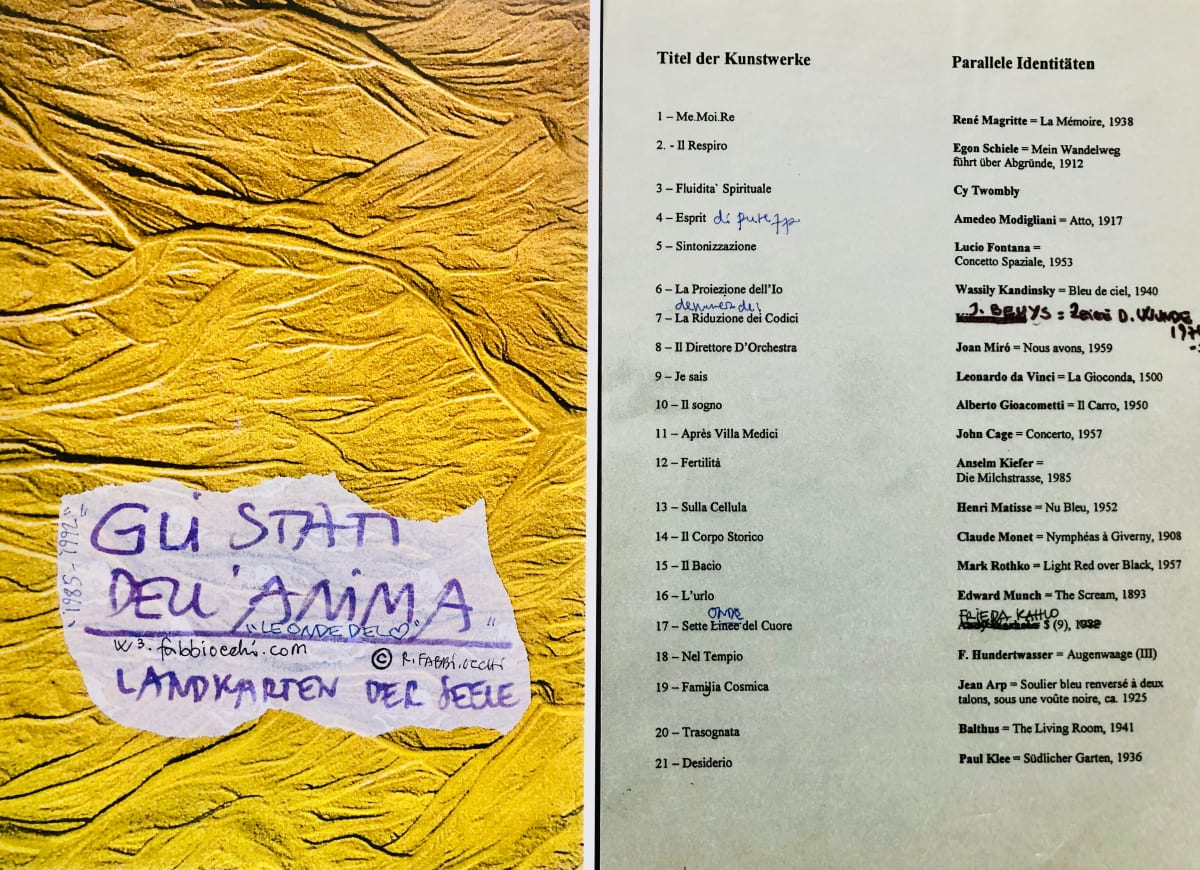 GLI STATI
DELL'ANIMA
"1985-1992"
"LE ONDE DEL ♡"
w3.fabbiocchi.com
© R.FABBIOCCHI
LANDKARTEN DER SEELE
Titel der Kunstwerke
Parallele Identitäten
1 – Me.Moi.Re
René Magritte = La Mémoire, 1938
2. - Il Respiro
Egon Schiele = Mein Wandelweg
führt über Abgründe, 1912
3 – Fluidita` Spirituale
Cy Twombly
4 – Esprit di
Amedeo Modigliani = Atto, 1917
5 – Sintonizzazione
Lucio Fontana =
Concetto Spaziale, 1953
6 – La Proiezione dell'Io
Wassily Kandinsky = Bleu de ciel, 1940
7 – La Riduzione dei Codici
J. BEUYS = D. WUNDE
8 – Il Direttore D'Orchestra
Joan Miró = Nous avons, 1959
9 – Je sais
Leonardo da Vinci = La Gioconda, 1500
10 – Il sogno
Alberto Gioacometti = Il Carro, 1950
11 – Après Villa Medici
John Cage = Concerto, 1957
12 – Fertilitá
Anselm Kiefer =
Die Milchstrasse, 1985
13 – Sulla Cellula
Henri Matisse = Nu Bleu, 1952
14 – Il Corpo Storico
Claude Monet = Nymphéas à Giverny, 1908
15 – Il Bacio
Mark Rothko = Light Red over Black, 1957
16 – L'urlo
Edward Munch = The Scream, 1893
ONDE
17 – Sette Linee del Cuore
FRIEDA KAHLO
$ (9), 1982
18 – Nel Tempio
F. Hundertwasser = Augenwaage (III)
19 – Famiglia Cosmica
Jean Arp = Soulier bleu renversé à deux
talons, sous une voûte noire, ca. 1925
20 – Trasognata
Balthus = The Living Room, 1941
21 – Desiderio
Paul Klee = Südlicher Garten, 1936